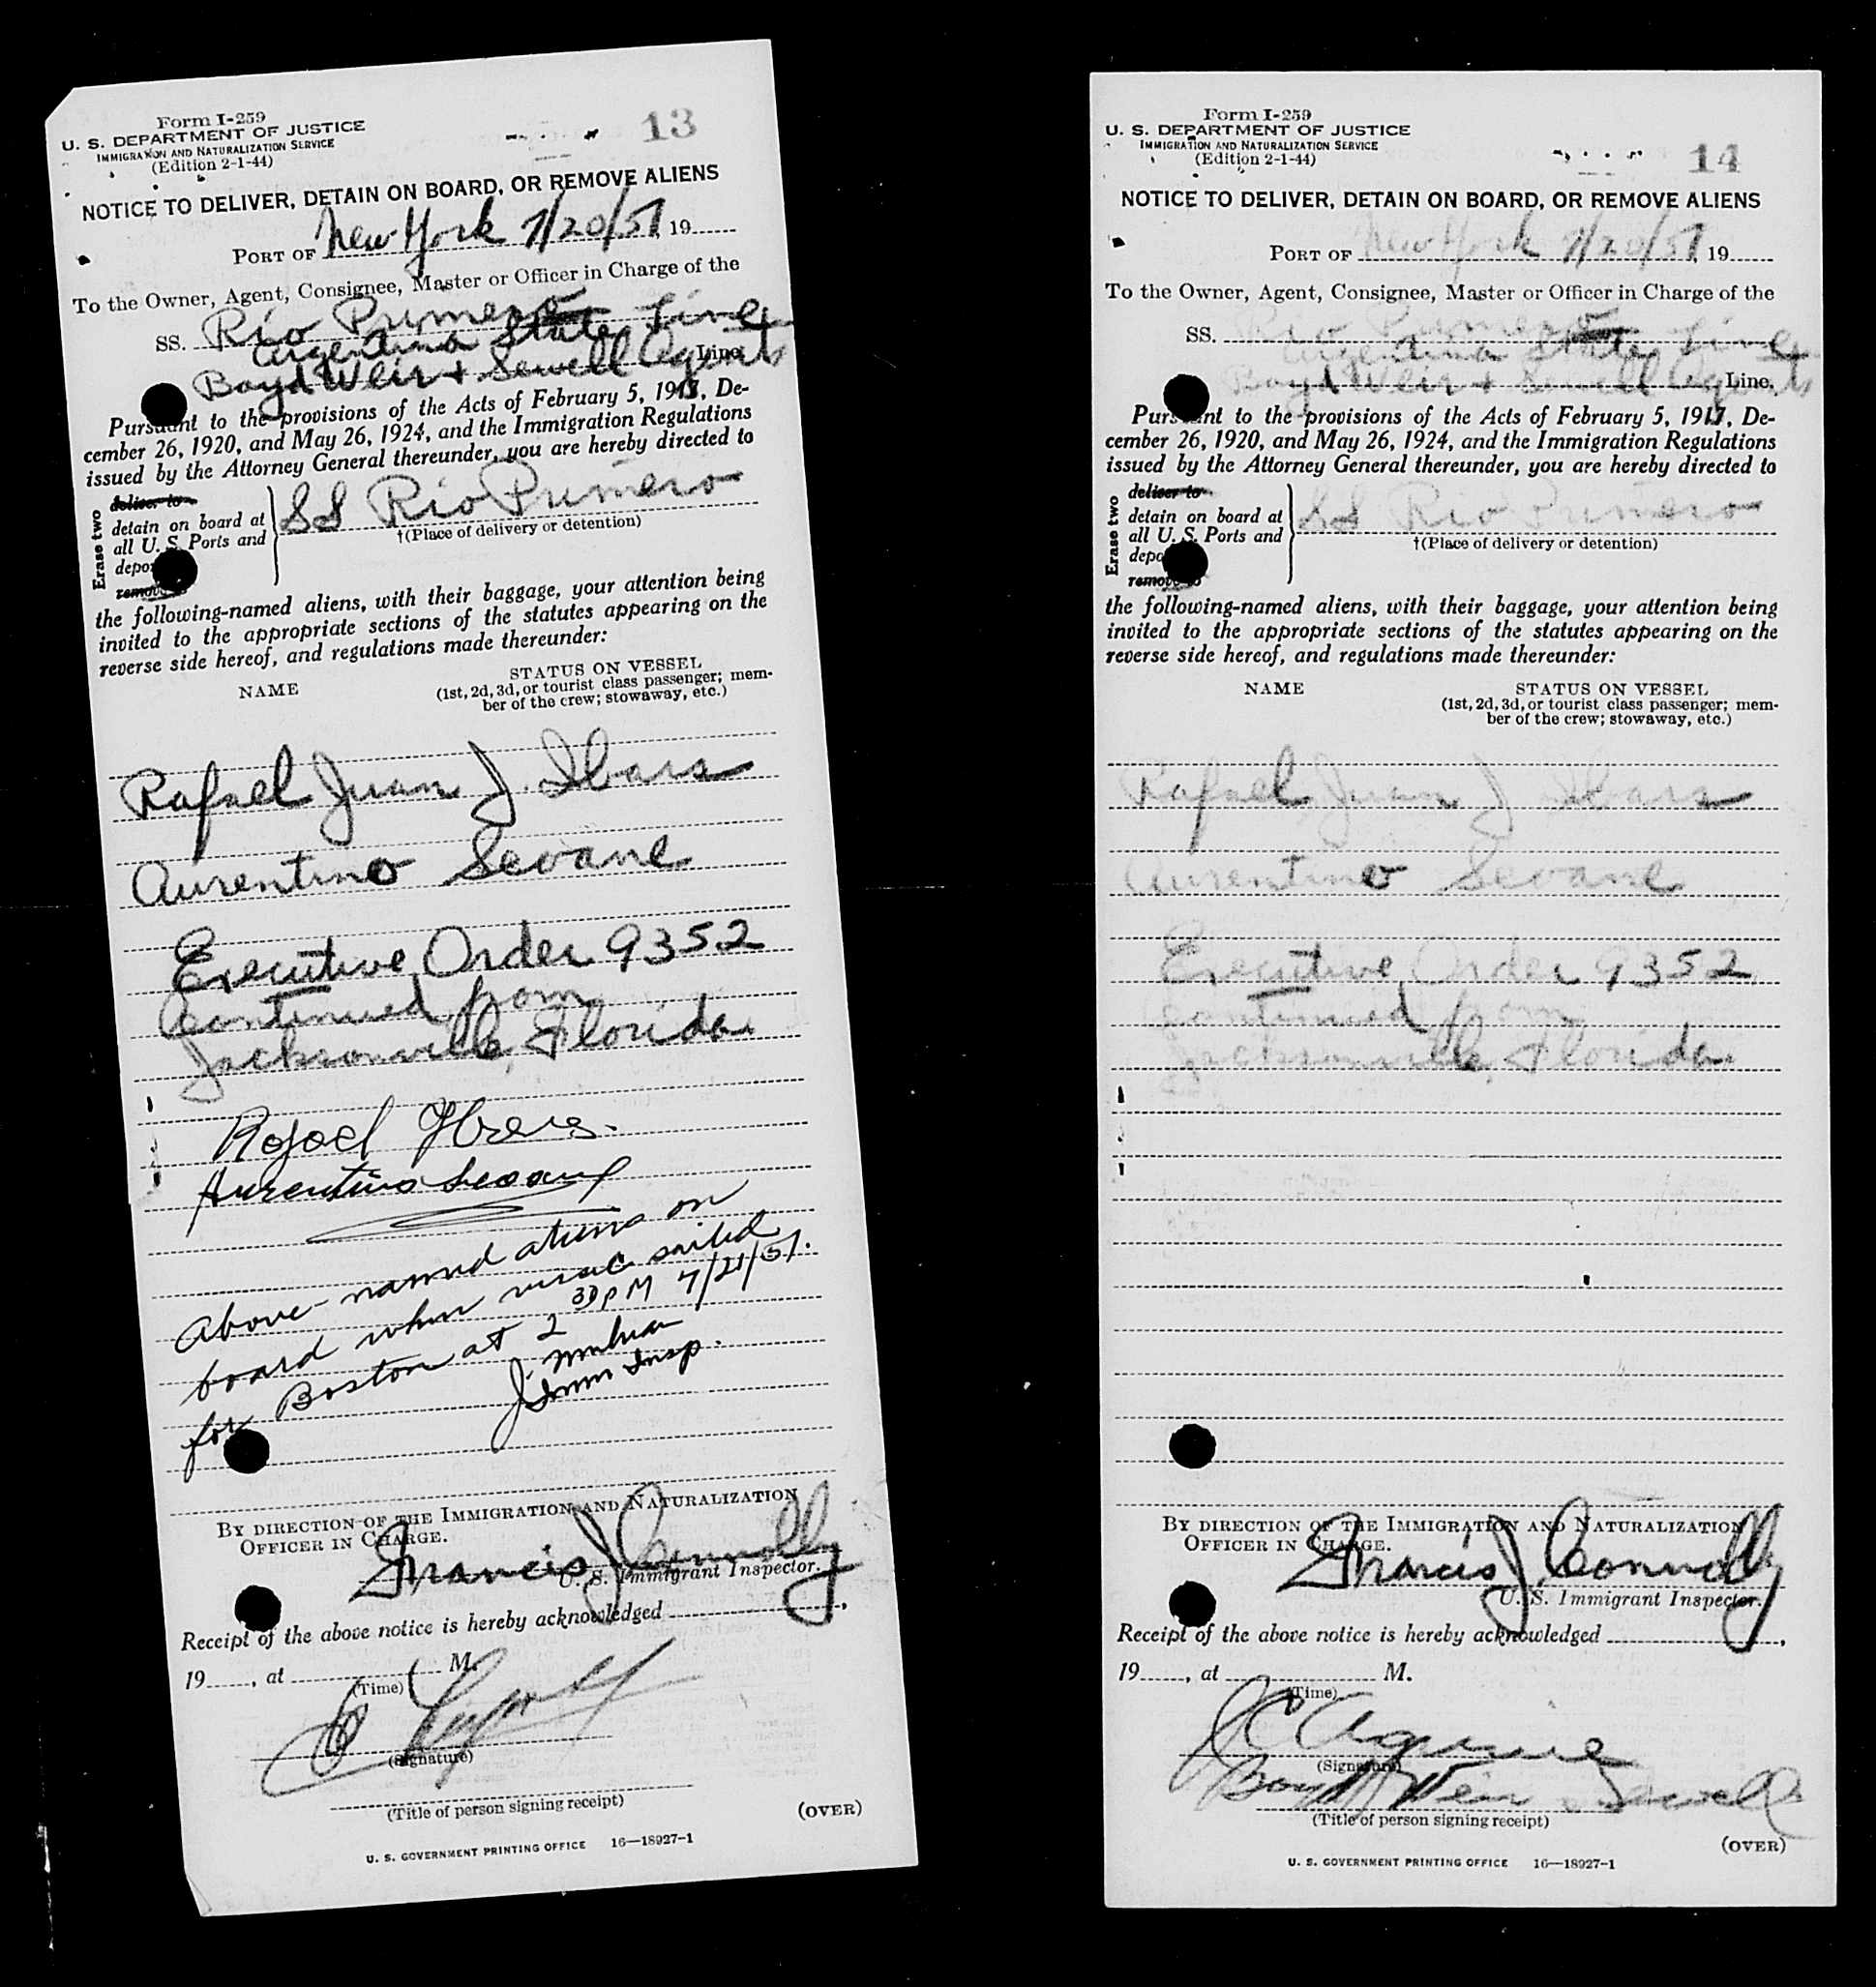 Form I-259
U. S. DEPARTMENT OF JUSTICE
IMMIGRATION AND NATURALIZATION SERVICE
(Edition 2-1-44)
13
NOTICE TO DELIVER, DETAIN ON BOARD, OR REMOVE ALIENS
PORT OF New York 7/20/51, 19
To the Owner, Agent, Consignee, Master or Officer in Charge of the
SS. Rio Primero
Argentina State Line
Boyd Weir & Sewell Agents Line,
Pursuant to the provisions of the Acts of February 5, 1917, De-
cember 26, 1920, and May 26, 1924, and the Immigration Regulations
issued by the Attorney General thereunder, you are hereby directed to
Erase two
deliver to
detain on board at
all U. S. Ports and
depo
remove to
SS Rio Primero
†(Place of delivery or detention)
the following-named aliens, with their baggage, your attention being
invited to the appropriate sections of the statutes appearing on the
reverse side hereof, and regulations made thereunder:
NAME
STATUS ON VESSEL
(1st, 2d, 3d, or tourist class passenger; mem-
ber of the crew; stowaway, etc.)
Rafael Juan J. Ibars
Aurentino Seoane
Executive Order 9352
Continued from
Jacksonville, Florida
Rafael Ibars.
Aurentino Seoane
Above-named aliens on
board when vessel sailed
for Boston at 2 30 PM 7/21/51.
J.
Imm Insp.
BY DIRECTION OF THE IMMIGRATION AND NATURALIZATION
OFFICER IN CHARGE.
Francis J Connolly
U. S. Immigrant Inspector.
Receipt of the above notice is hereby acknowledged ,
19 , at M.
(Time)
(Signature)
(Title of person signing receipt)
(OVER)
U. S. GOVERNMENT PRINTING OFFICE 16—18927-1
Form I-259
U. S. DEPARTMENT OF JUSTICE
IMMIGRATION AND NATURALIZATION SERVICE
(Edition 2-1-44)
14
NOTICE TO DELIVER, DETAIN ON BOARD, OR REMOVE ALIENS
PORT OF New York 7/20/51, 19
To the Owner, Agent, Consignee, Master or Officer in Charge of the
SS. Rio Primero
Argentina State Line
Boyd Weir & Sewell Agents Line,
Pursuant to the provisions of the Acts of February 5, 1917, De-
cember 26, 1920, and May 26, 1924, and the Immigration Regulations
issued by the Attorney General thereunder, you are hereby directed to
Erase two
deliver to
detain on board at
all U. S. Ports and
depo
remove to
SS Rio Primero
†(Place of delivery or detention)
the following-named aliens, with their baggage, your attention being
invited to the appropriate sections of the statutes appearing on the
reverse side hereof, and regulations made thereunder:
NAME
STATUS ON VESSEL
(1st, 2d, 3d, or tourist class passenger; mem-
ber of the crew; stowaway, etc.)
Rafael Juan J Ibars
Aurentino Seoane
Executive Order 9352
Continued from
Jacksonville, Florida
BY DIRECTION OF THE IMMIGRATION AND NATURALIZATION
OFFICER IN CHARGE.
Francis J. Connolly
U. S. Immigrant Inspector.
Receipt of the above notice is hereby acknowledged ,
19 , at M.
(Time)
J C Aguirre
(Signature)
Boyd Weir Sewell
(Title of person signing receipt)
(OVER)
U. S. GOVERNMENT PRINTING OFFICE 16—18927-1